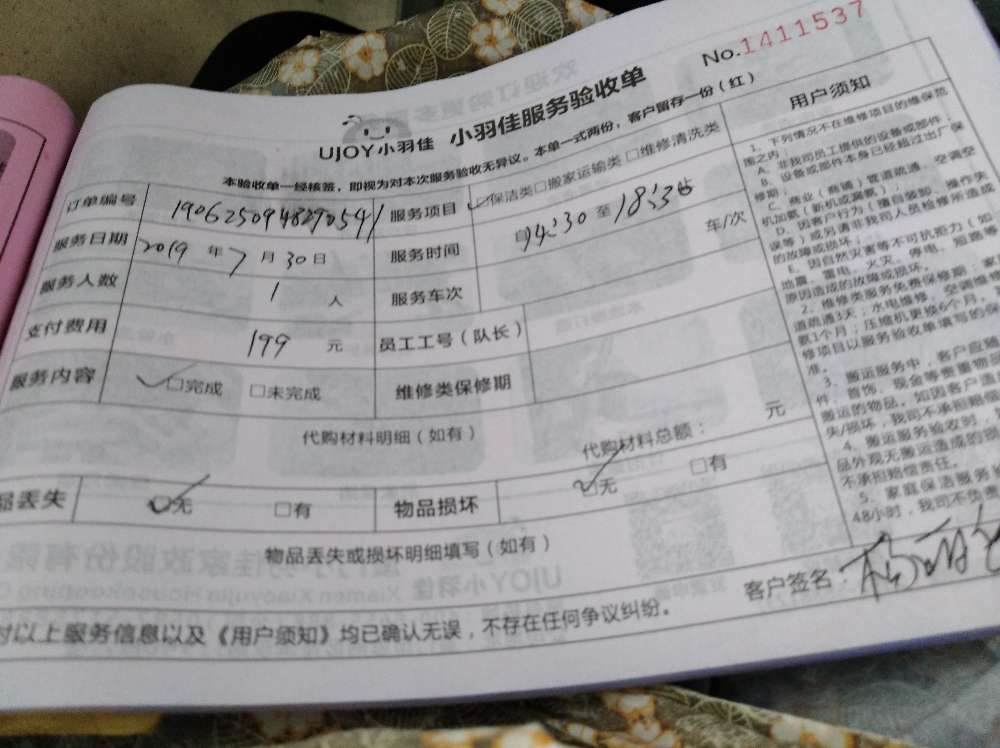 No.1411537
UJOY小羽佳 小羽佳服务验收单
本验收单一经核签，即视为对本次服务验收无异议。本单一式两份，客户留存一份（红）
订单编号 190625094829054 服务项目 保洁类□搬家运输类□维修清洗类
服务日期 2019年7月30日 服务时间 14:30至18:30
服务人数 1人 服务车次 车/次
支付费用 199元 员工工号（队长）
服务内容 □完成 □未完成 维修类保修期
代购材料明细（如有） 代购材料总额： 元
品丢失 □无 □有 物品损坏 □无 □有
物品丢失或损坏明细填写（如有）
对以上服务信息以及《用户须知》均已确认无误，不存在任何争议纠纷。 客户签名：
用户须知
1、下列情况不在维修项目的维保范
围之内：
A、非我司员工提供的设备或部件，
B、设备或部件本身已经超过出厂保
修期；
C、商业（商铺）管道疏通、空调空
机加氨（新机或漏氨）；
D、因客户行为（擅自装卸、操作失
误等）或另请非我司人员检修所造成
的故障或损坏；
E、因自然灾害等不可抗拒力（如
地震、雷电、火灾、停电、短路等
原因造成的故障或损坏。
2、维修类服务免费保修期：家
道疏通3天；水电维修、空调维
氨1个月；压缩机更换6个月，
修项目以服务验收单填写的保
准。
3、搬运服务中，客户应随
件、首饰、现金等贵重物品
搬运的物品。如因客户遗
失/损坏，我司不承担赔偿
4、搬运服务验收时，
品外观无搬运造成的损
不承担赔偿责任。
5、家庭保洁服务
48小时，我司不负责